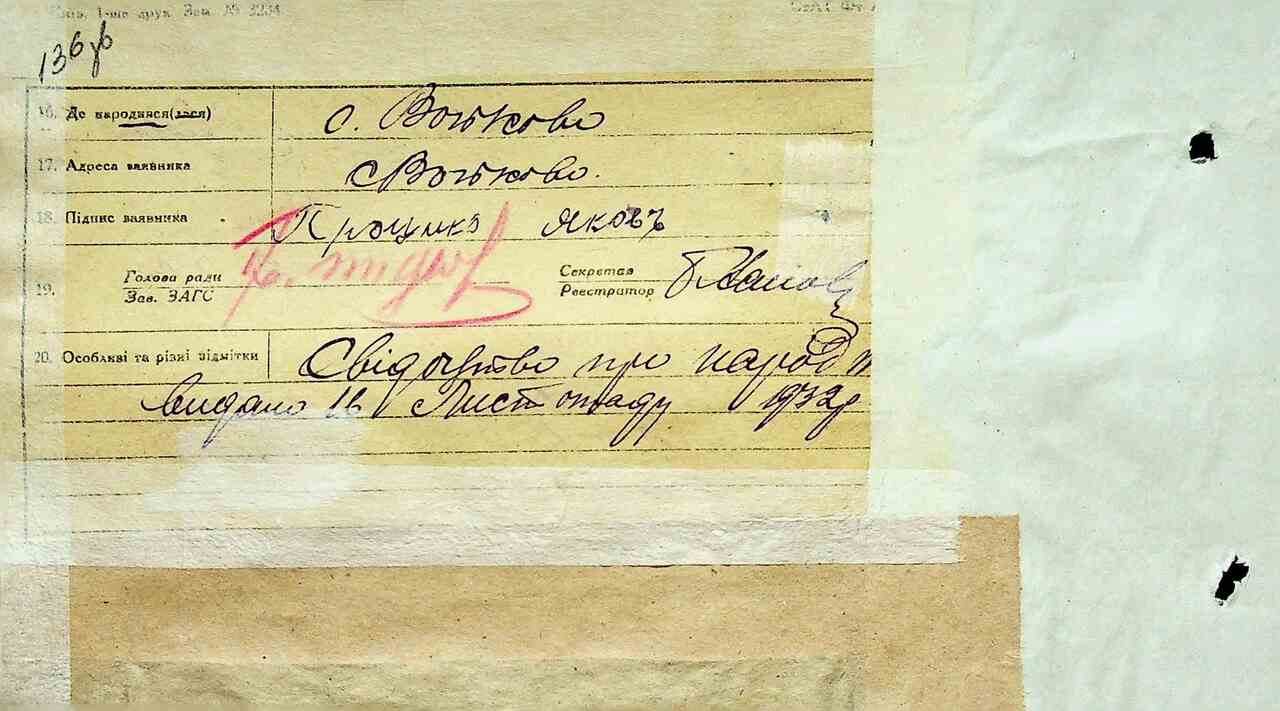 1-ше друк. Зам. № 3234
136 зв
16. Де народився(лася) с. Войкове
17. Адреса заявника с Войкове.
18. Підпис заявника Процико Яковъ
Голова ради Секретар
19. Зав. ЗАГС Реєстратор
20. Особливі та різні відмітки Свідоцтво про народж
видано 16 Листопаду 1932р